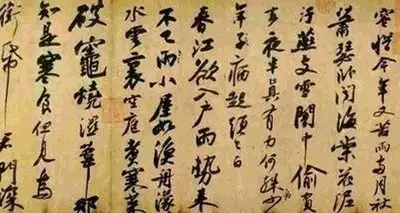 容惜今年又苦雨兩月秋
蕭瑟卧聞海棠花泥
汙燕支雪闇中偷負
去夜半真有力何殊少
年子病起頭已白
春江欲入戶雨勢來
不已雨小屋如漁舟濛
水雲裏空庖煮寒菜
破竈燒濕葦那
知是寒食但見烏
銜帋君門深